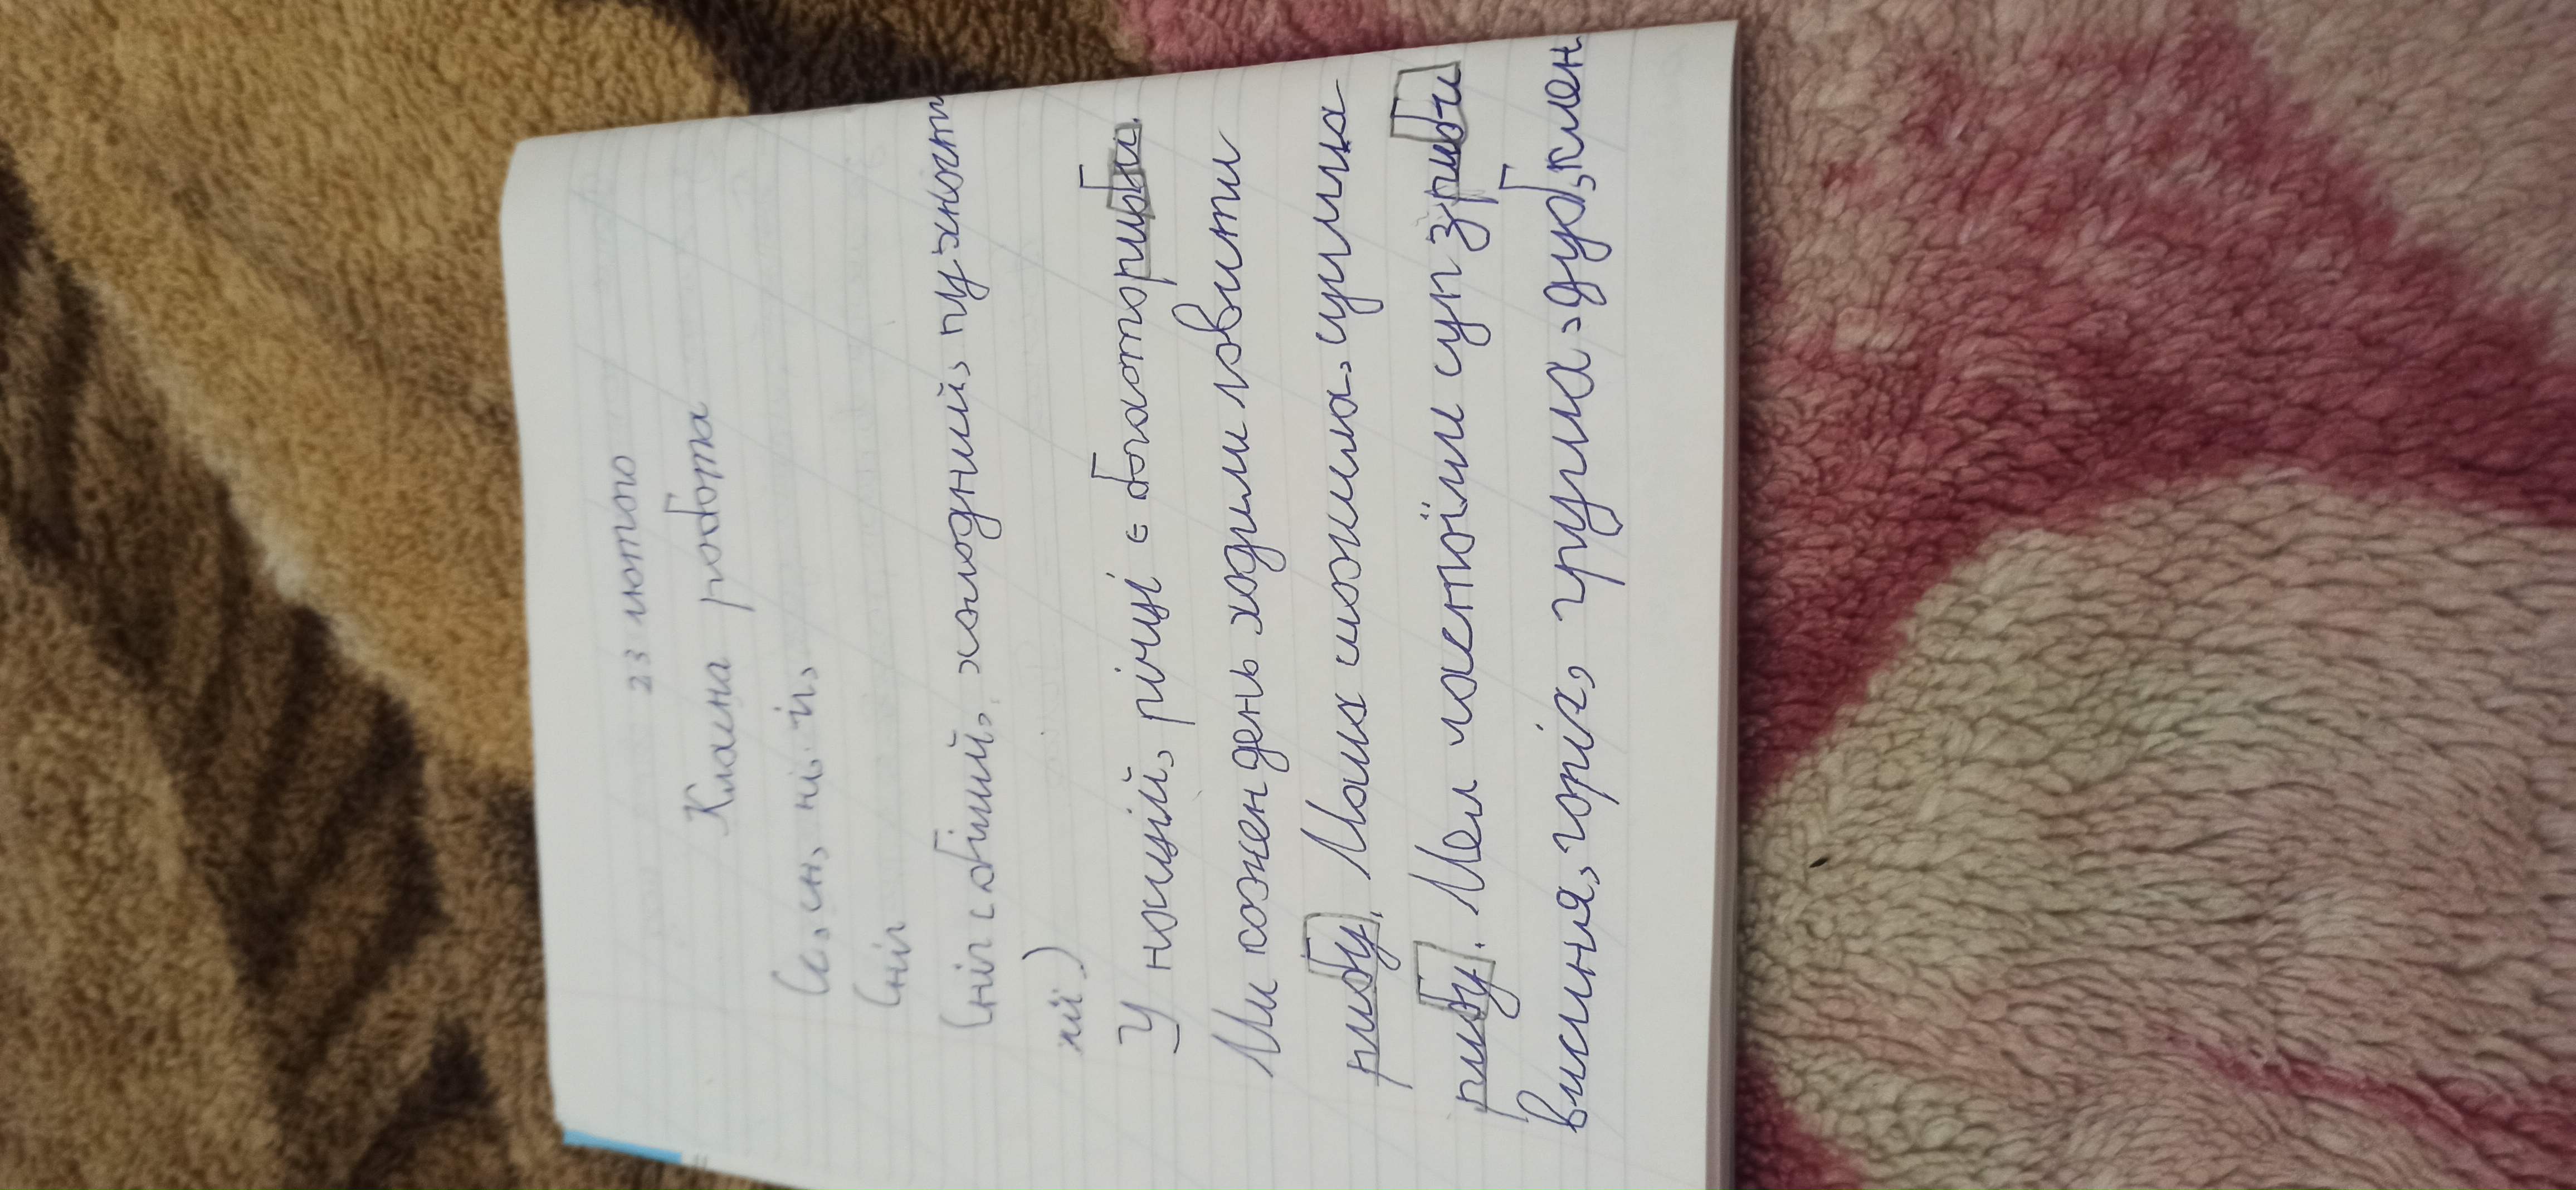 23 лютого
Класна робота
Сс, сн, ні, іг,
Сніг
Сніг (білий, холодний, пухнаст
ий)
У нашій, річці є багато риби.
Ми кожен день ходили ловити
рибу. Мама смажила, сушила
рибу. Ми ласяїли суп з риби
вишня, горіх, груша, дуб, клен